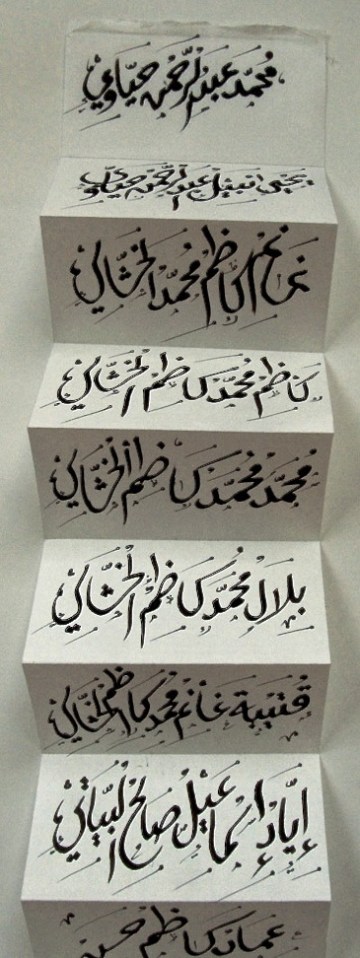 محمد عبدالرحمن حياوي
يحيى نبيل عبدالرحمن حياوي
كاظم محمد الخشالي
كاظم محمد كاظم الخشالي
محمد محمد كاظم الخشالي
بلال محمد كاظم الخشالي
قتيبة غانم محمد كاظم الخشالي
إياد إسماعيل صالح البياتي
كاظم محسن